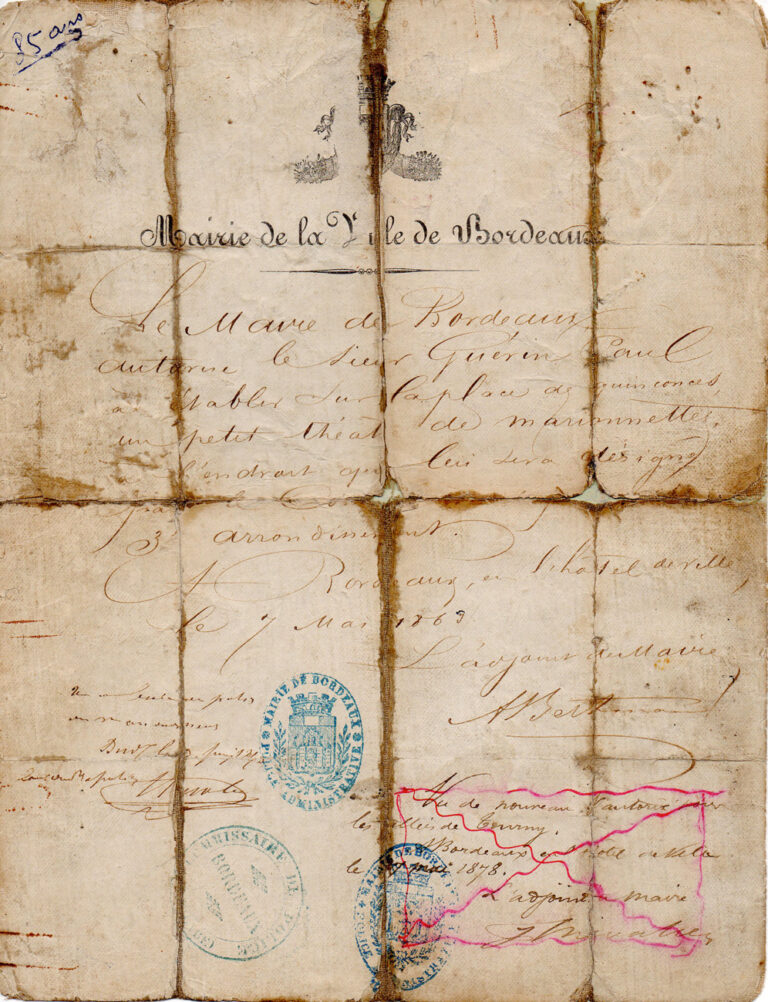 85 ans
Mairie de la Ville de Bordeaux
Le Maire de Bordeaux
autorise le sieur Guérin Paul
à établir sur la place de quinconces,
un petit théat de marionnettes,
à l'endroit qui lui sera désigné
par le
3e arrondissement.
A Bordeaux, en l'hôtel de ville,
le 7 Mai 1863
L'adjoint du Maire
MAIRIE DE BORDEAUX
POLICE ADMINISTRATIVE
COMMISSAIRE DE POLICE
BORDEAUX
Vu de nouveau
les allées de Tourny.
Bordeaux
le mai 1878.
L'adjoint maire
MAIRIE DE BORDEAUX